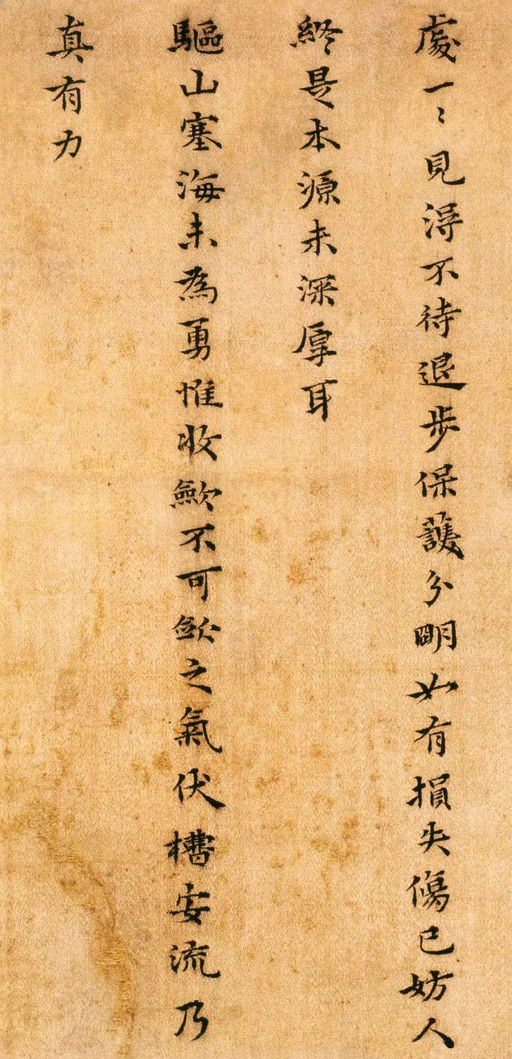 處一々見得不待退步保護分明如有損失傷已妨人
終是本源未深厚耳
驅山塞海未為勇惟收歛不可歛之氣伏槽安流乃
真有力